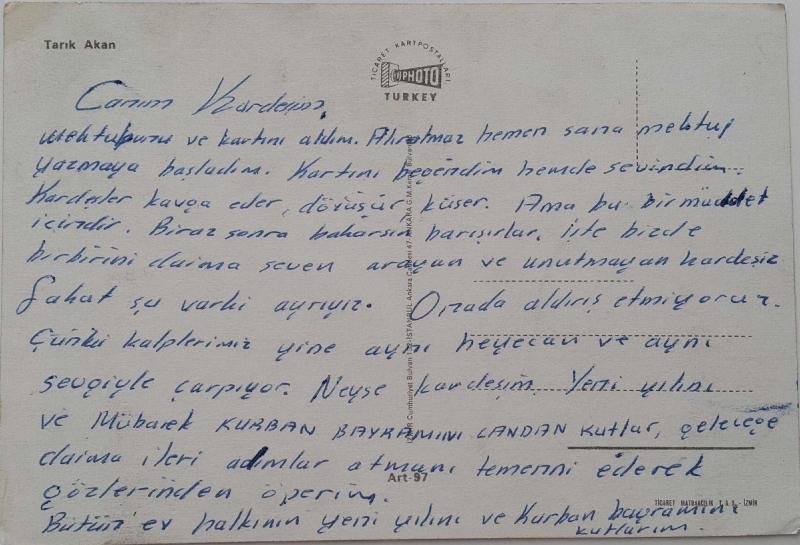 Tarık Akan
TİCARET KARTPOSTALLARI
PHOTO
TURKEY
Canım Kardeşim,
mektubunu ve kartını aldım. Alıralmaz hemen sana mektup
yazmaya başladım. Kartını beğendim hemde sevindim.
Kardeşler kavga eder, dövüşür, küser. Ama bu bir müddet
içindir. Biraz sonra bakarsın barışırlar. İşte bizde
birbirini daima seven arayan ve unutmayan kardeşiz
Fakat şu varki ayrıyız. Orada aldırış etmiyoruz.
Çünkü kalplerimiz yine aynı heyecan ve aynı
sevgiyle çarpıyor. Neyse kardeşim. Yeni yılını
ve Mübarek KURBAN BAYRAMINI CANDAN kutlar, geleceğe
daima ileri adımlar atmanı temenni ederek
gözlerinden öperim.
Bütün ev halkının yeni yılını ve Kurban bayramını
kutlarım.
Art-97
TİCARET MATBAACILIK T.A.Ş. - İZMİR
İZMİR Cumhuriyet Bulvarı İSTANBUL Ankara Caddesi 47-ANKARA G.M.Kemal Bulvarı